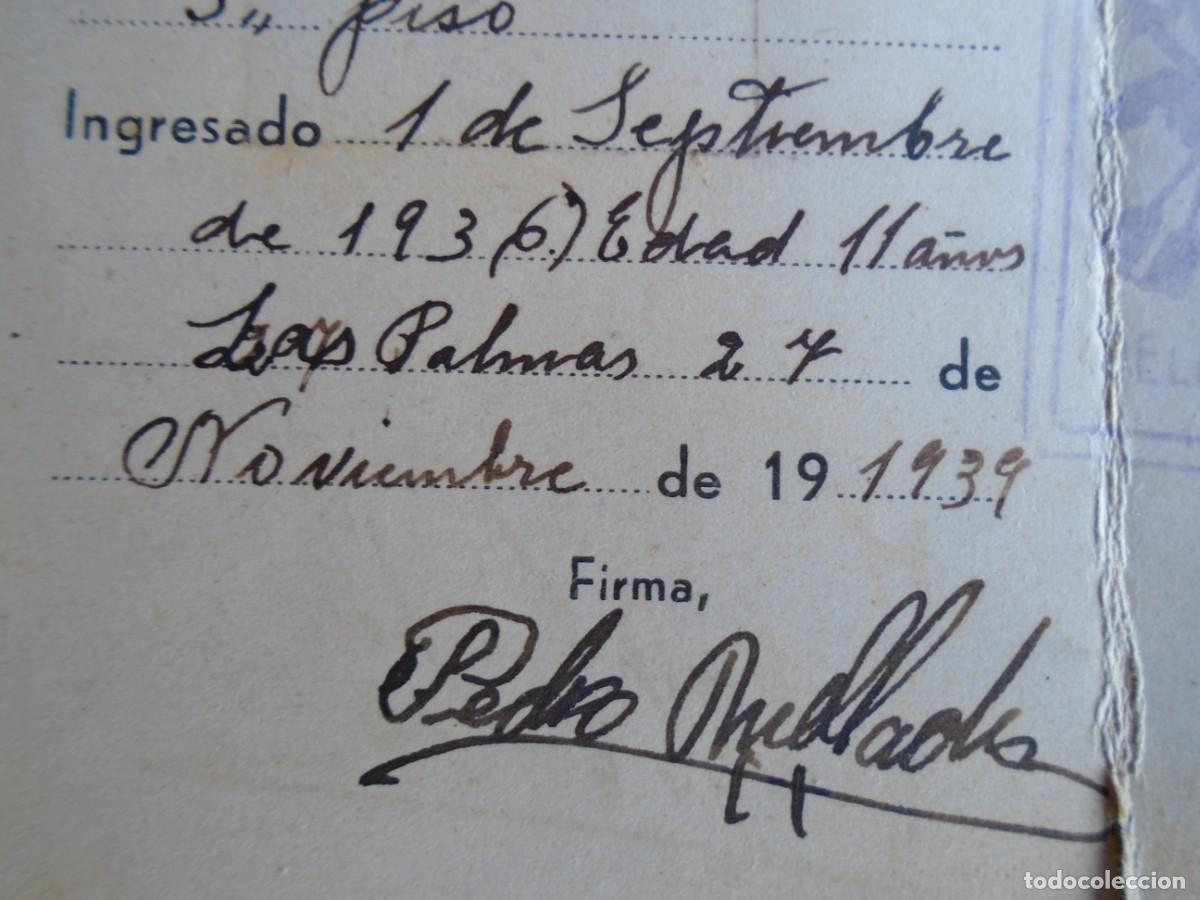 piso
Ingresado 1 de Septiembre
de 193(6) Edad 11 años
Las Palmas 27 de
Noviembre de 19 1939
Firma,
Pedro
todocoleccion